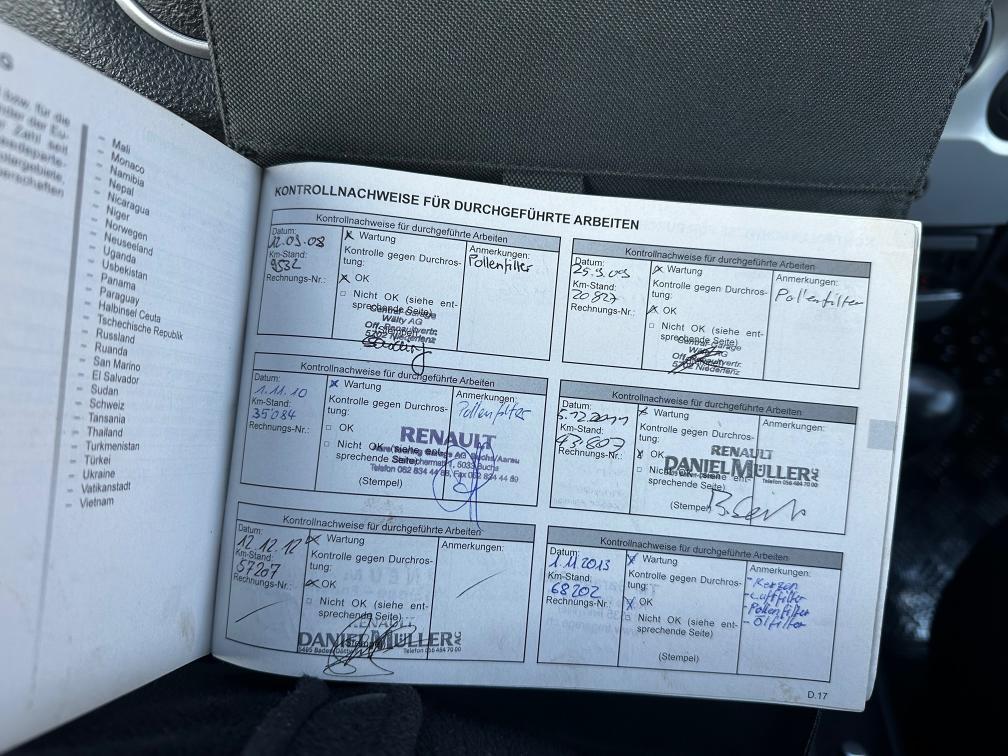 bzw. für die
- Mali
- Monaco
- Namibia
- Nepal
- Nicaragua
- Niger
- Norwegen
- Neuseeland
- Uganda
- Usbekistan
- Panama
- Paraguay
- Halbinsel Ceuta
- Tschechische Republik
- Russland
- Ruanda
- San Marino
- El Salvador
- Sudan
- Schweiz
- Tansania
- Thailand
- Turkmenistan
- Türkei
- Ukraine
- Vatikanstadt
- Vietnam
KONTROLLNACHWEISE FÜR DURCHGEFÜHRTE ARBEITEN
Kontrollnachweise für durchgeführte Arbeiten
Datum:
12.03.08
Km-Stand:
9532
Rechnungs-Nr.:
Wartung
Kontrolle gegen Durchros-
tung:
OK
Nicht OK (siehe ent-
sprechende Seite)
Wälty AG
Off. Renaultvertr.
5702 Niederlenz
Anmerkungen:
Pollenfilter
Kontrollnachweise für durchgeführte Arbeiten
Datum:
25.3.09
Km-Stand:
20827
Rechnungs-Nr.:
Wartung
Kontrolle gegen Durchros-
tung:
OK
Nicht OK (siehe ent-
sprechende Seite)
5702 Niederlenz
Anmerkungen:
Pollenfilter
Kontrollnachweise für durchgeführte Arbeiten
Datum:
1.11.10
Km-Stand:
35084
Rechnungs-Nr.:
Wartung
Kontrolle gegen Durchros-
tung:
OK
Nicht OK (siehe ent-
sprechende Seite)
(Stempel)
Anmerkungen:
Pollenfilter
RENAULT
5033 Buchs
Telefon 062 834 44 88, Fax 062 834 44 89
Kontrollnachweise für durchgeführte Arbeiten
Datum:
5.12.2011
Km-Stand:
43807
Rechnungs-Nr.:
Wartung
Kontrolle gegen Durchros-
tung:
OK
Nicht OK (siehe ent-
sprechende Seite)
(Stempel)
Anmerkungen:
RENAULT
DANIEL MÜLLER AG
Telefon 056 484 70 00
Kontrollnachweise für durchgeführte Arbeiten
Datum:
12.12.12
Km-Stand:
57207
Rechnungs-Nr.:
Wartung
Kontrolle gegen Durchros-
tung:
OK
Nicht OK (siehe ent-
sprechende Seite)
Anmerkungen:
RENAULT
DANIEL MÜLLER AG
5405 Baden-Dättwil Telefon 056 484 70 00
Kontrollnachweise für durchgeführte Arbeiten
Datum:
1.11.2013
Km-Stand:
68202
Rechnungs-Nr.:
Wartung
Kontrolle gegen Durchros-
tung:
OK
Nicht OK (siehe ent-
sprechende Seite)
(Stempel)
Anmerkungen:
- Kerzen
- Luftfilter
- Pollenfilter
- Ölfilter
D.17